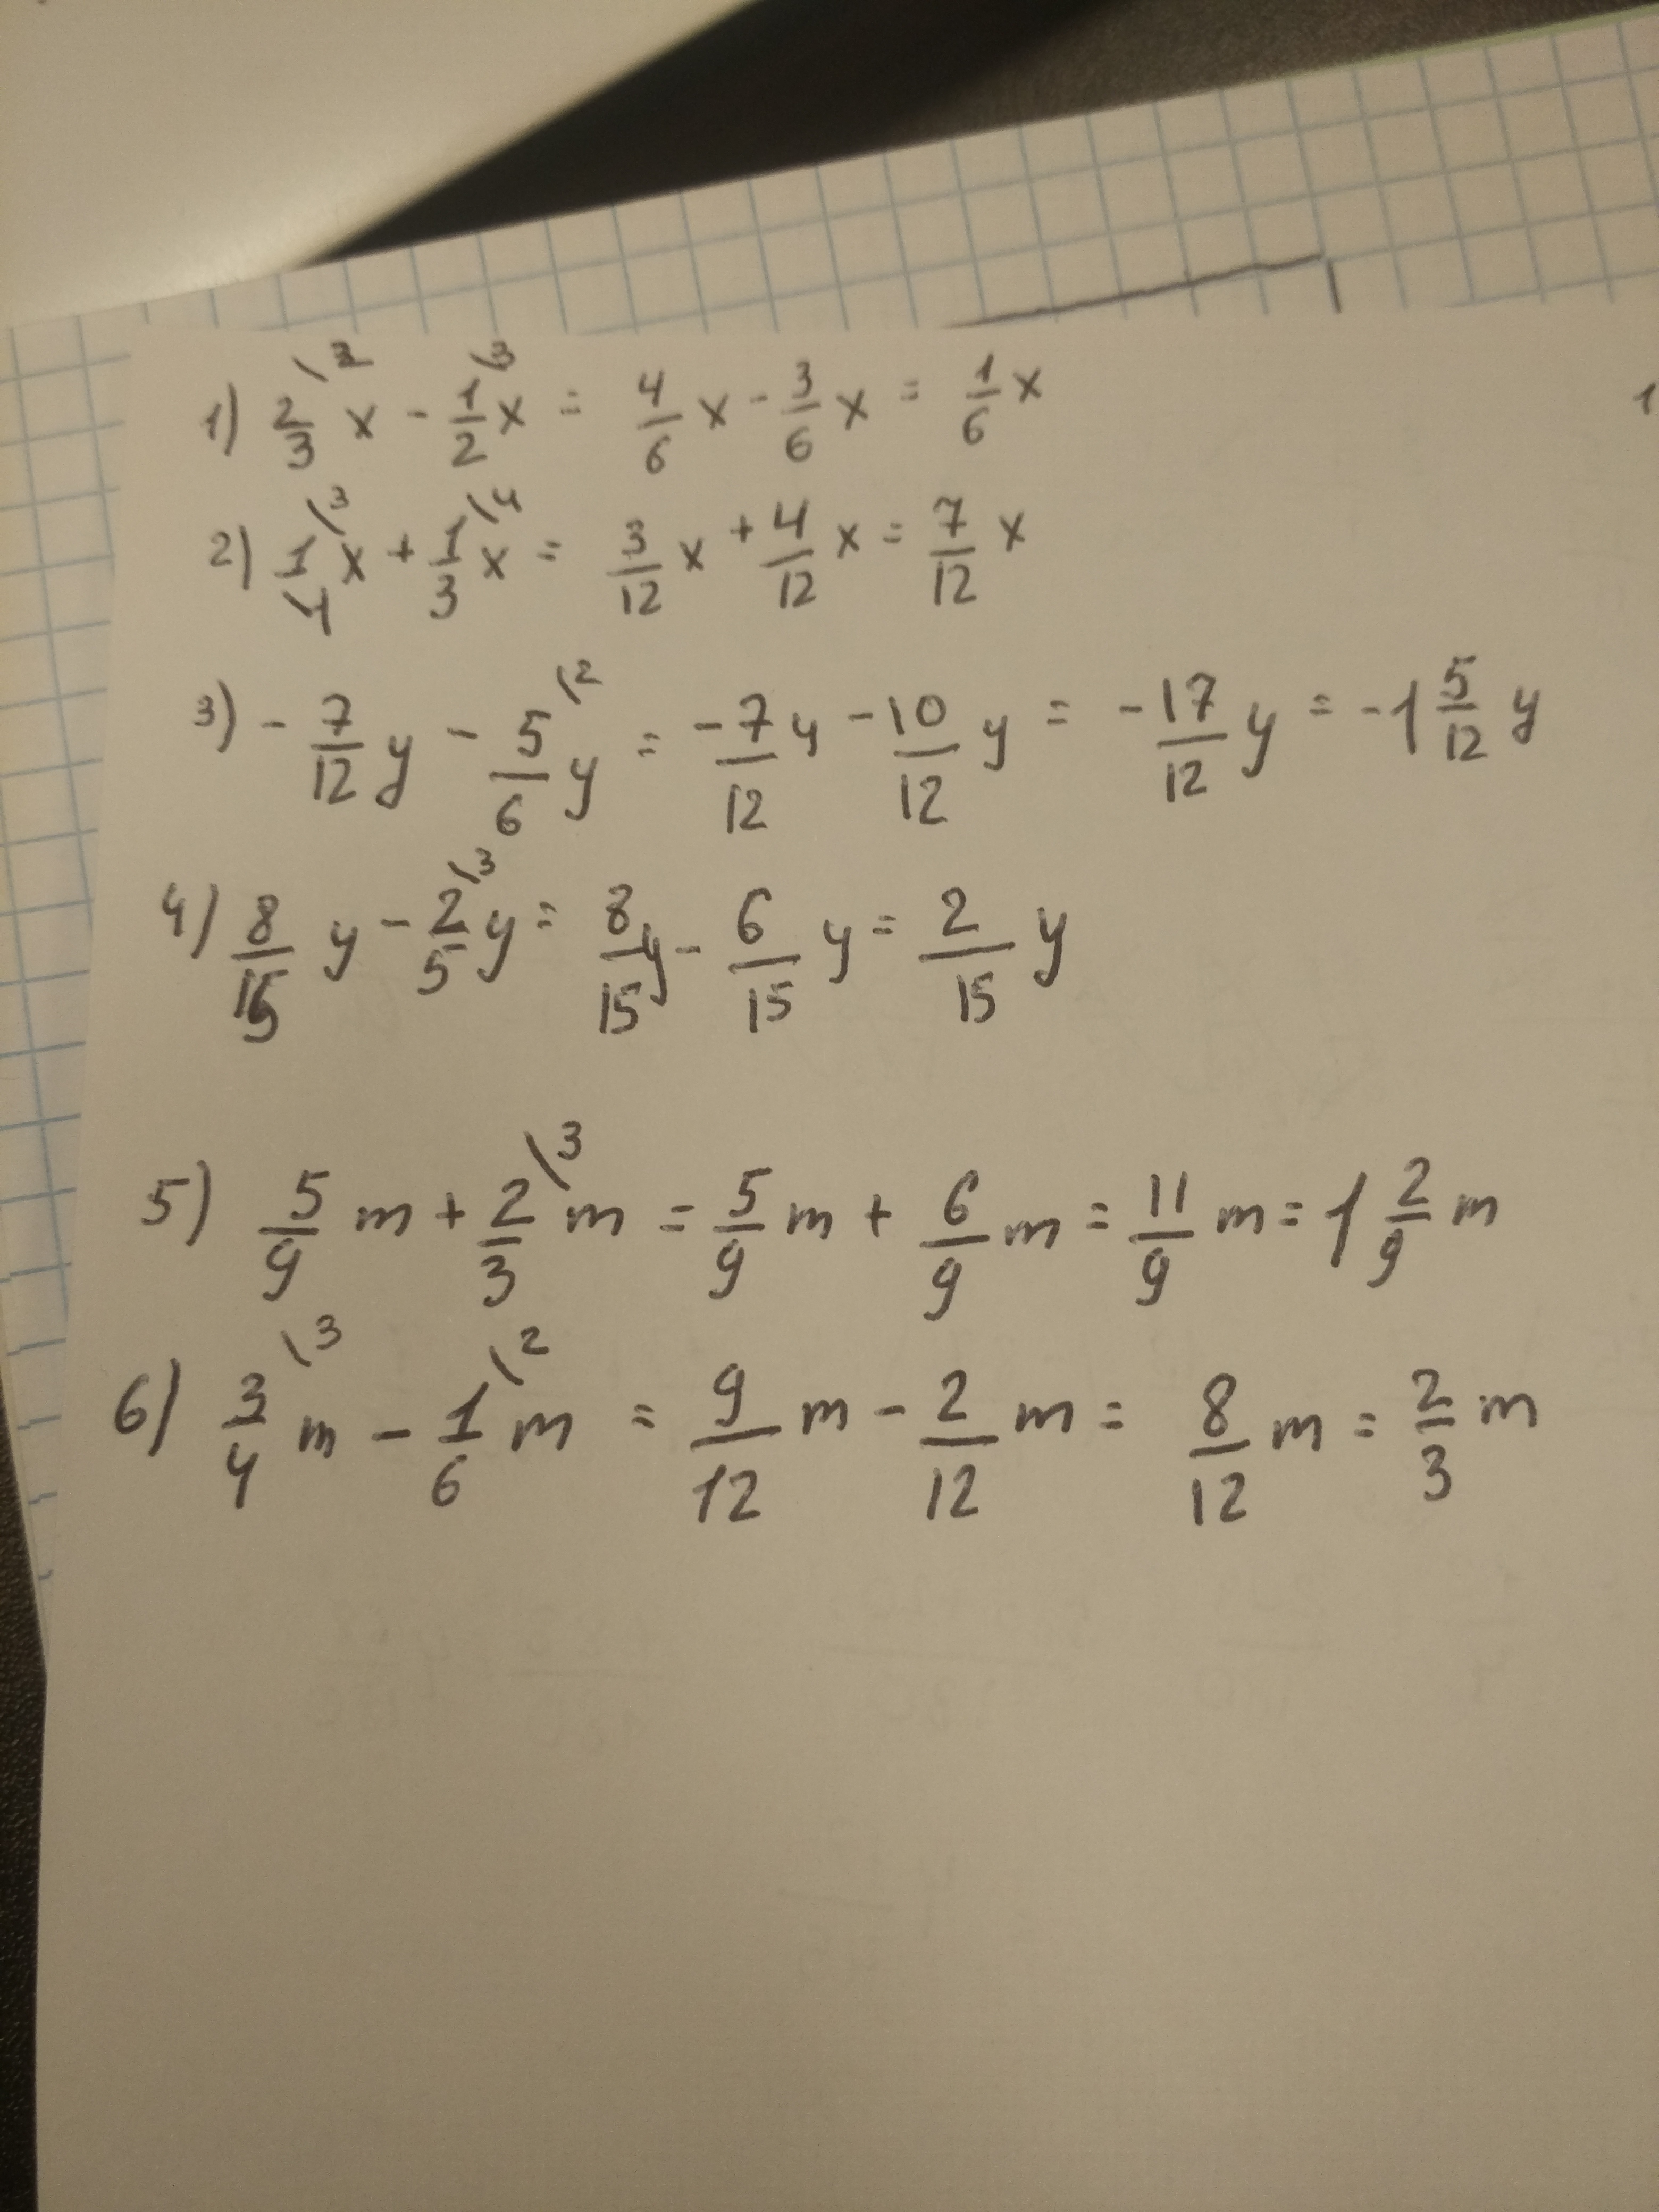 1) 2/3 \2 x - 1/2 \3 x = 4/6 x - 3/6 x = 1/6 x
2) 1/4 \3 x + 1/3 \4 x = 3/12 x + 4/12 x = 7/12 x
3) - 7/12 y - 5/6 \2 y = -7/12 y - 10/12 y = - 17/12 y = -1 5/12 y
4) 8/15 y - 2/5 \3 y = 8/15 y - 6/15 y = 2/15 y
5) 5/9 m + 2/3 \3 m = 5/9 m + 6/9 m = 11/9 m = 1 2/9 m
6) 3/4 \3 m - 1/6 \2 m = 9/12 m - 2/12 m = 8/12 m = 2/3 m